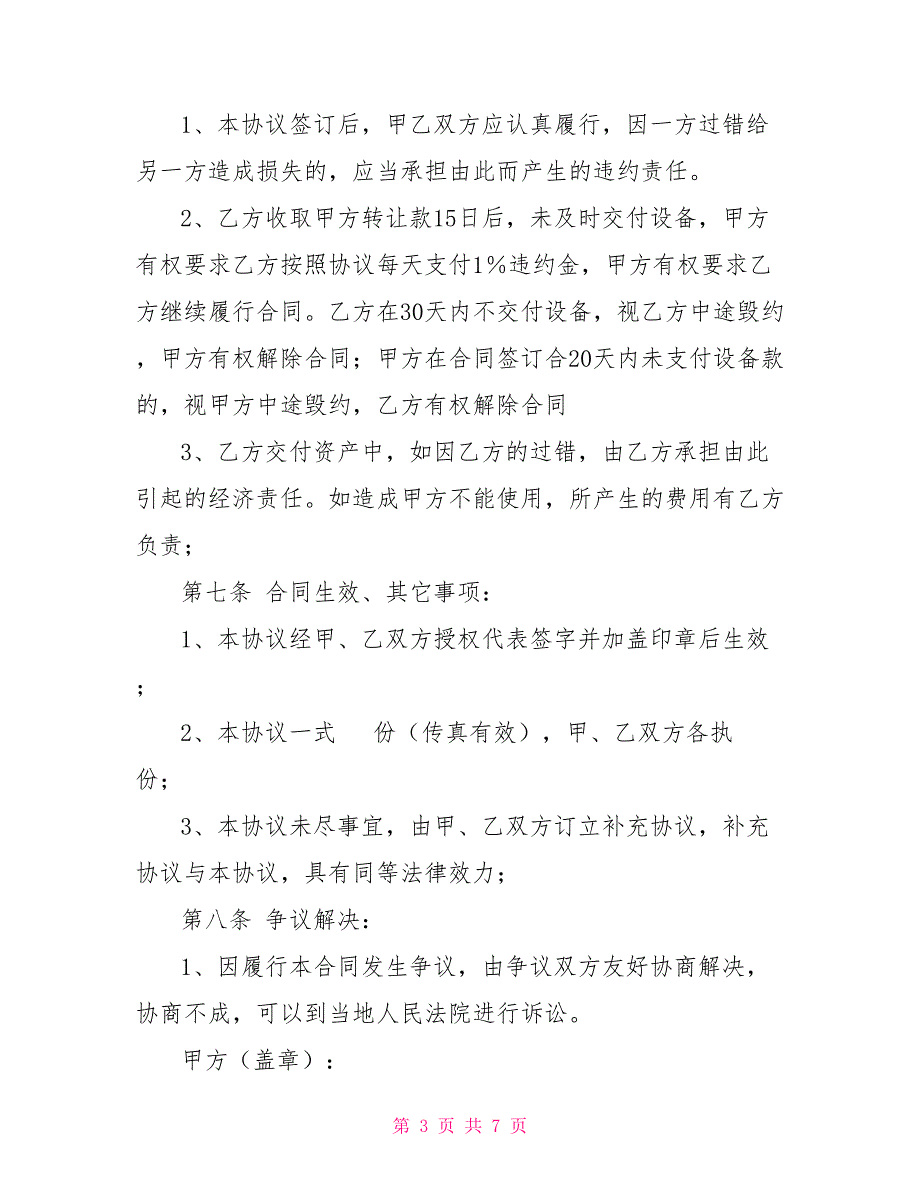 1、本协议签订后，甲乙双方应认真履行，因一方过错给
另一方造成损失的，应当承担由此而产生的违约责任。
2、乙方收取甲方转让款15日后，未及时交付设备，甲方
有权要求乙方按照协议每天支付1％违约金，甲方有权要求乙
方继续履行合同。乙方在30天内不交付设备，视乙方中途毁约
，甲方有权解除合同；甲方在合同签订合20天内未支付设备款
的，视甲方中途毁约，乙方有权解除合同
3、乙方交付资产中，如因乙方的过错，由乙方承担由此
引起的经济责任。如造成甲方不能使用，所产生的费用有乙方
负责；
第七条 合同生效、其它事项：
1、本协议经甲、乙双方授权代表签字并加盖印章后生效
；
2、本协议一式 份（传真有效），甲、乙双方各执
份；
3、本协议未尽事宜，由甲、乙双方订立补充协议，补充
协议与本协议，具有同等法律效力；
第八条 争议解决：
1、因履行本合同发生争议，由争议双方友好协商解决，
协商不成，可以到当地人民法院进行诉讼。
甲方（盖章）：
第 3 页 共 7 页